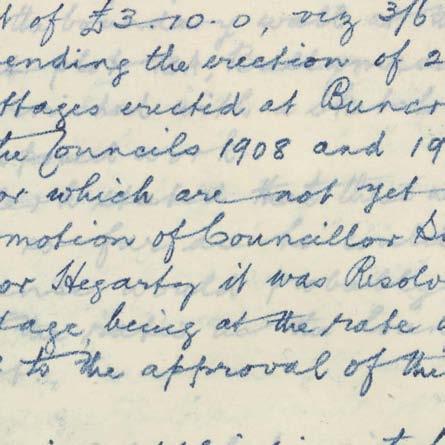 t of £3.10.0, viz 3/6
ending the erection of 2
ttages erected at Buncr
the Councils 1908 and 19
or which are not yet
motion of Councillor
or Hegarty it was Resolv
tage, being at the rate
to the approval of the